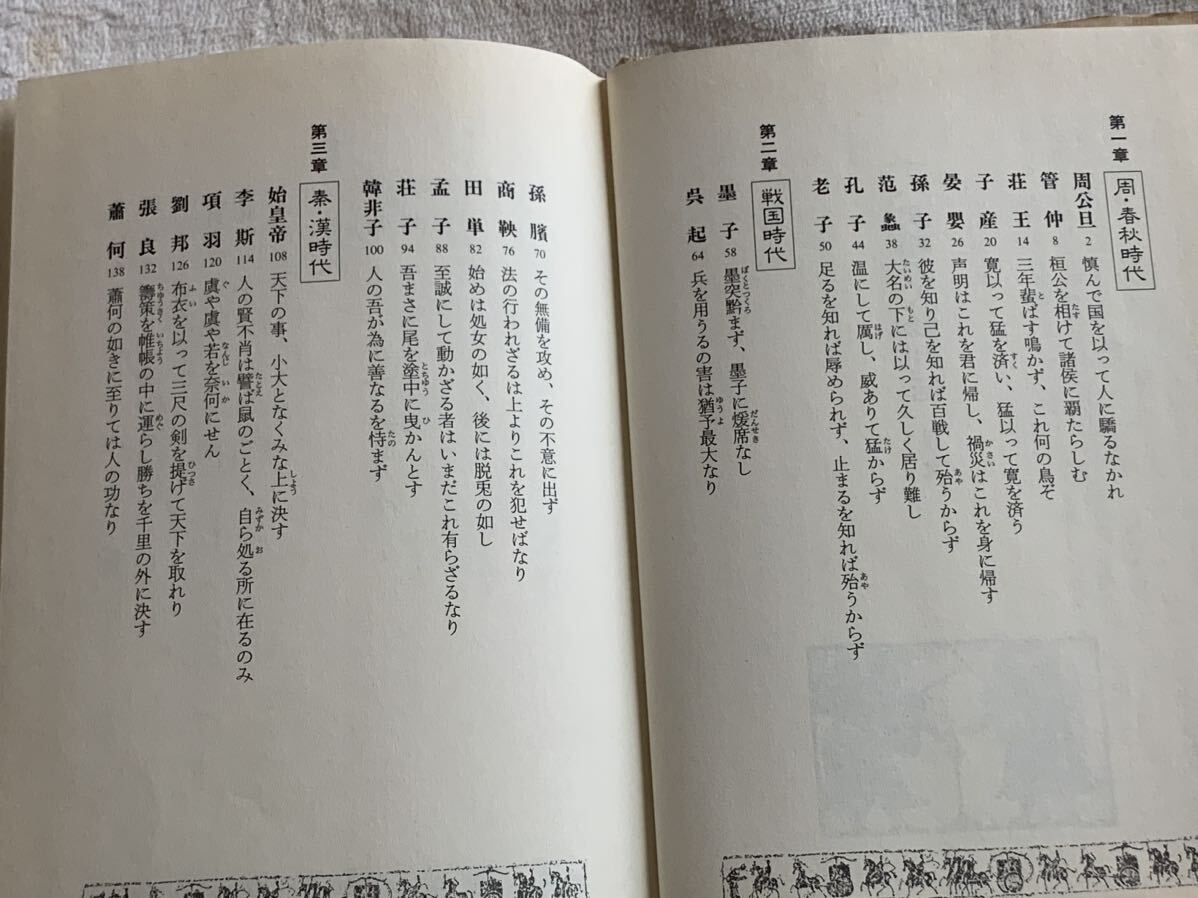 第一章 周・春秋時代
周公旦 2 慎んで国を以って人に驕るなかれ
管仲 8 桓公を相けて諸侯に覇たらしむ
荘王 14 三年蜚ばす鳴かず、これ何の鳥ぞ
子産 20 寛以って猛を済い、猛以って寛を済う
晏嬰 26 声明はこれを君に帰し、禍災はこれを身に帰す
孫子 32 彼を知り己を知れば百戦して殆うからず
范蠡 38 大名の下には以って久しく居り難し
孔子 44 温にして厲し、威ありて猛からず
老子 50 足るを知れば辱められず、止まるを知れば殆うからず
第二章 戦国時代
墨子 58 墨突黔まず、墨子に煖席なし
呉起 64 兵を用うるの害は猶予最大なり
孫臏 70 その無備を攻め、その不意に出ず
商鞅 76 法の行われざるは上よりこれを犯せばなり
田単 82 始めは処女の如く、後には脱兎の如し
孟子 88 至誠にして動かざる者はいまだこれ有らざるなり
荘子 94 吾まさに尾を塗中に曳かんとす
韓非子 100 人の吾が為に善なるを恃まず
第三章 秦・漢時代
始皇帝 108 天下の事、小大となくみな上に決す
李斯 114 人の賢不肖は譬ば鼠のごとく、自ら処る所に在るのみ
項羽 120 虞や虞や若を奈何にせん
劉邦 126 布衣を以って三尺の剣を提げて天下を取れり
張良 132 籌策を帷帳の中に運らし勝ちを千里の外に決す
蕭何 138 蕭何の如きに至りては人の功なり